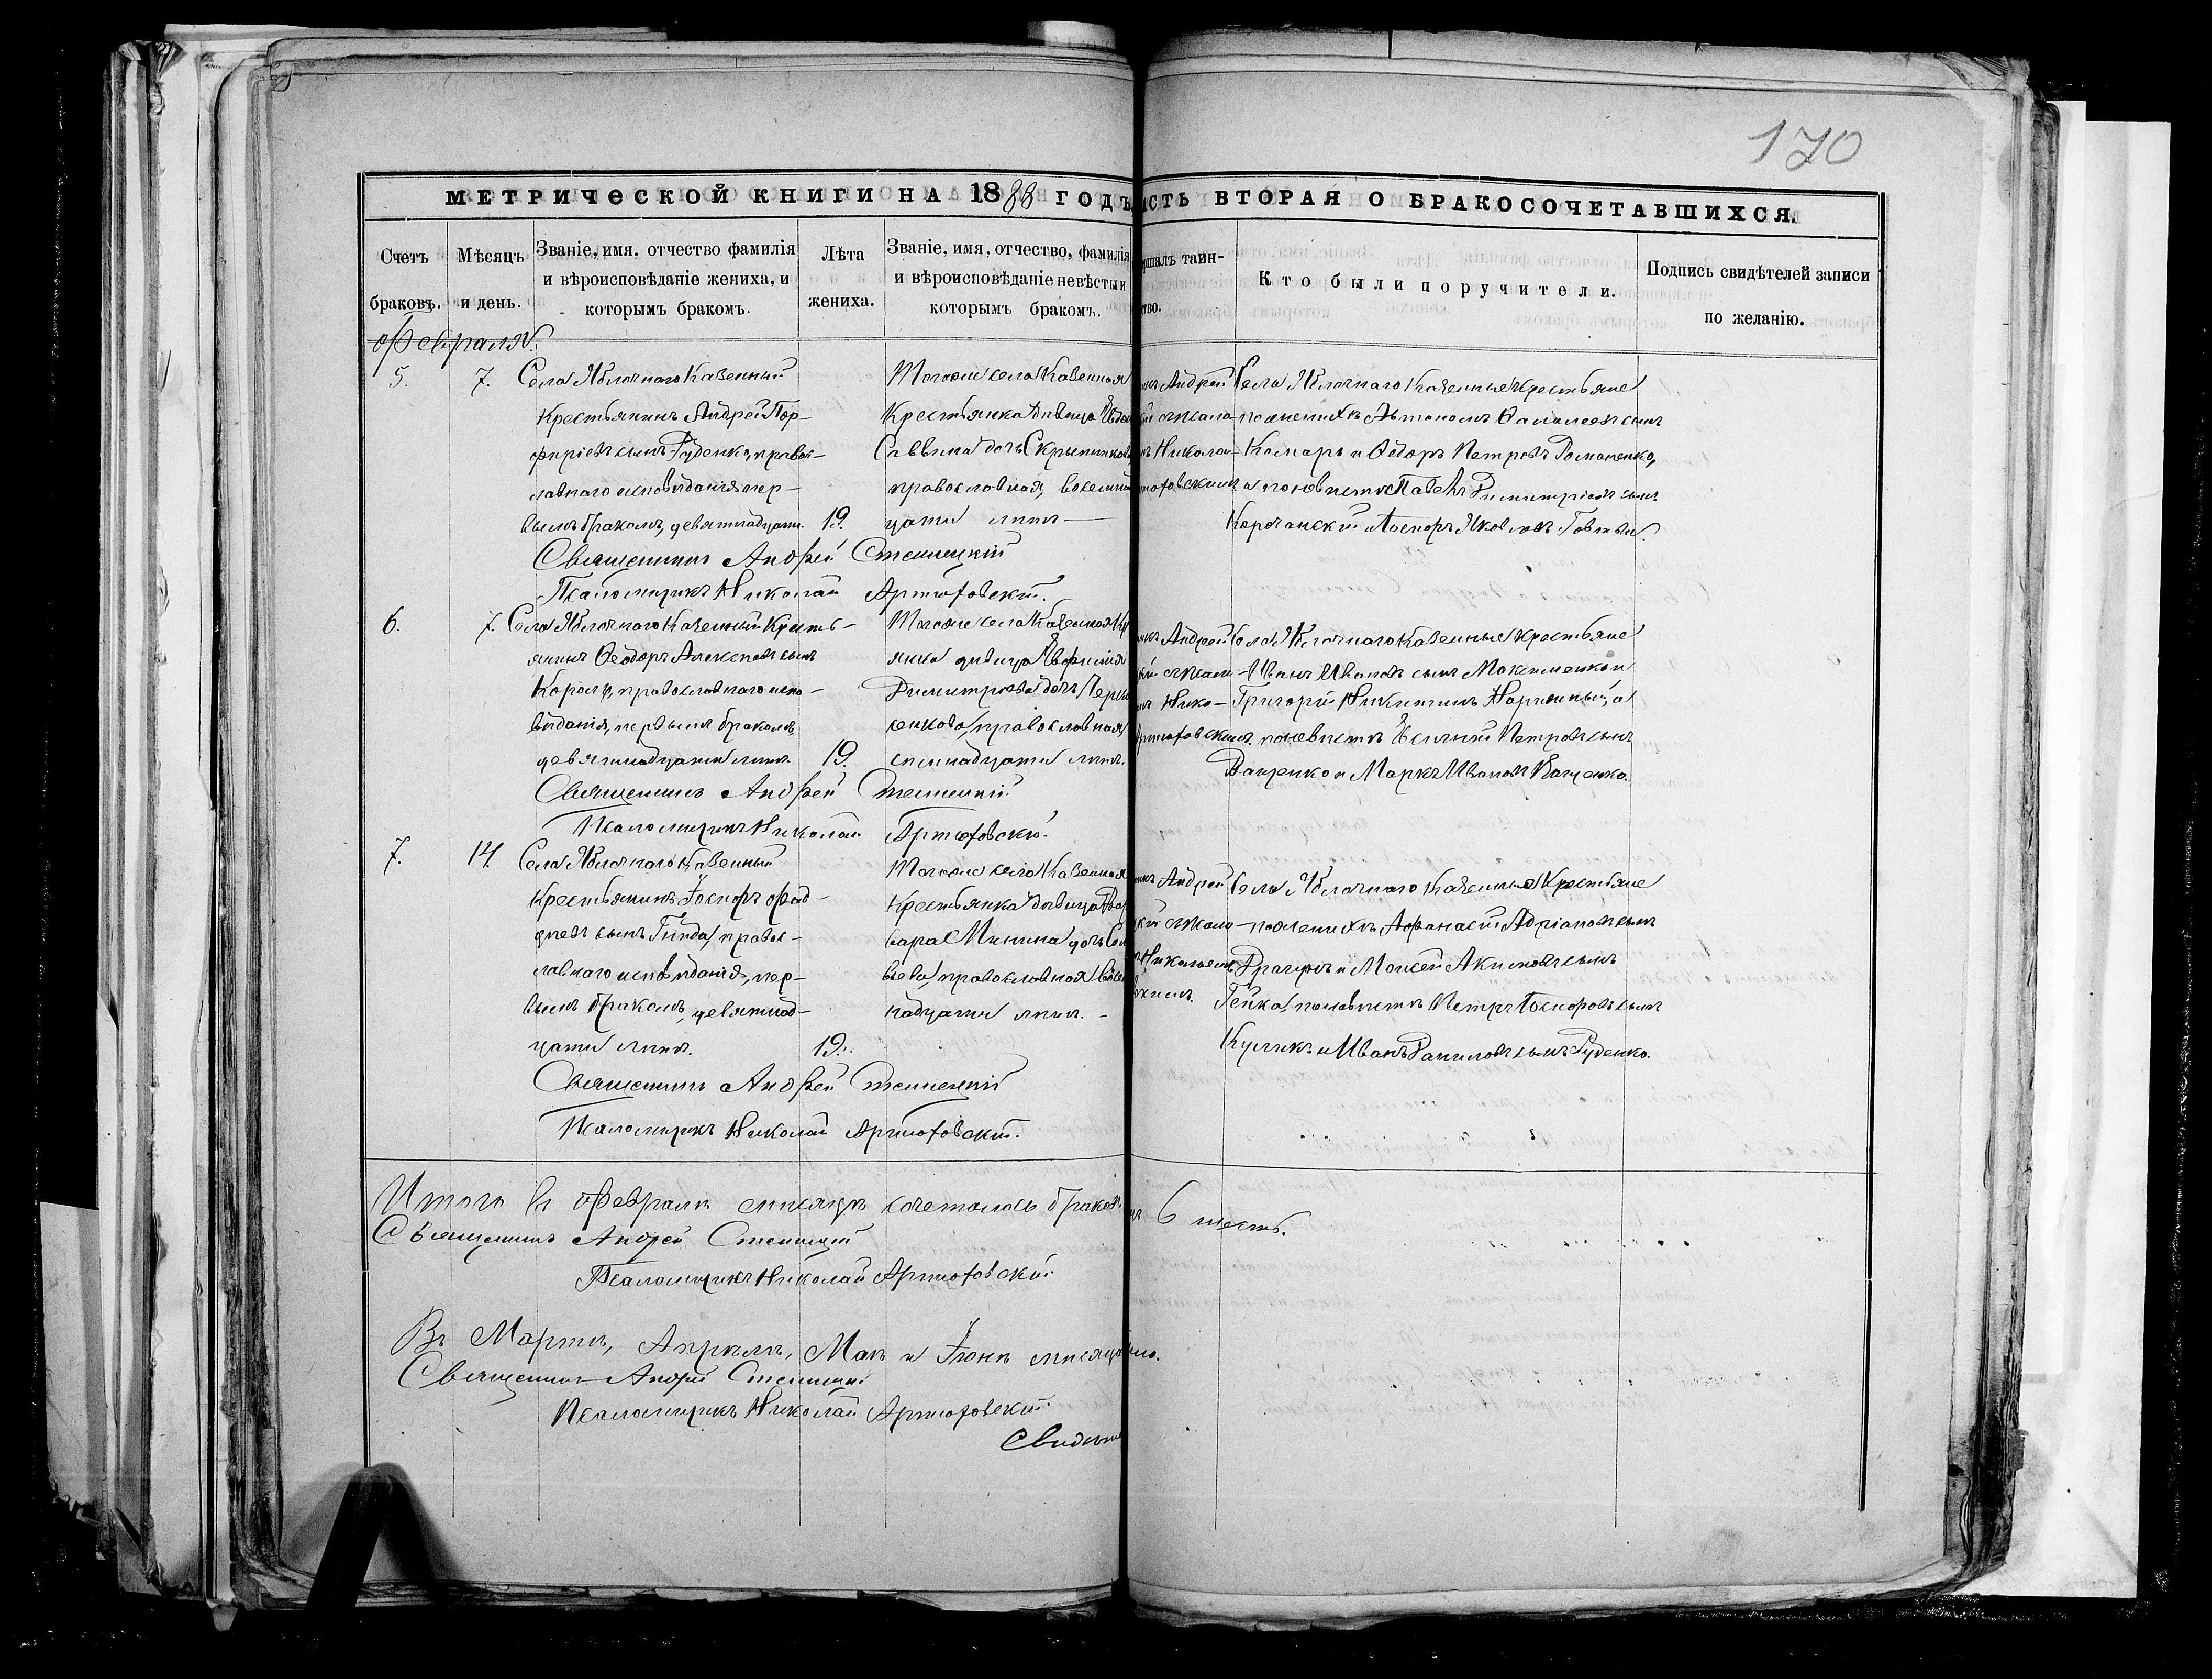 170
МЕТРИЧЕСКОЙ КНИГИ НА 1888 ГОДЪ
АСТЬ ВТОРАЯ О БРАКОСОЧЕТАВШИХСЯ.
Счетъ
браковъ.
Мѣсяцъ
и день.
Званіе, имя, отчество фамилія
и вѣроисповѣданіе жениха, и
которымъ бракомъ.
Лѣта
жениха.
Званіе, имя, отчество, фамилія
и вѣроисповѣданіе невѣсты и
которымъ бракомъ.
ершалъ таин-
тво.
Кто были поручители.
Подпись свидѣтелей записи
по желанію.
Февраля
5.
7.
Села Яблочнаго казенный
крестьянинъ Андрей Пор-
фиріевъ сынъ Руденко, правос-
лавнаго исповѣданія пер-
вымъ бракомъ, девятнадцати
19.
Тогоже села казенная
крестьянка дѣвица Евдо
Саввина дочь Скрынников
православная, восемнад
цати лѣтъ
Андрей
Николаи
Села Яблочнаго казенные крестьяне
по женихѣ Автономъ сынъ
Комаръ и Ѳедоръ Петровъ Романенко,
а по невѣстѣ Павелъ Димитріевъ сынъ
Корочанскій и Іосифъ Яковлевъ
Священникъ Андрей Стеллецкій
Псаломщикъ Николай Артюховскій.
6.
7.
Села Яблочнаго казенный кресть-
янинъ Ѳеодоръ Алексѣевъ сынъ
Король, православнаго испо-
вѣданія, первымъ бракомъ,
девятнадцати лѣтъ.
19.
Тогоже села казенная кр
янка дѣвица Евфимія
Димитріева дочь
енкова, православная,
семнадцати лѣтъ.
Андрей
Нико-
Села Яблочнаго казенные крестьяне
Иванъ Ивановъ сынъ Максименко и
Григорій Никитинъ Нарижный, а
по невѣстѣ Евгений Петровъ сынъ
Даценко и Марко Ивановъ Кащенко.
Священникъ Андрей Стеллецкій
Псаломщикъ Николай Артюховскій.
7.
14.
Села Яблочнаго казенный
крестьянинъ Іосифъ Фад-
деевъ сынъ Гинда, правос-
лавнаго исповѣданія, пер-
вымъ бракомъ, девятнад-
цати лѣтъ.
19.
Тогоже села казенная
крестьянка дѣвица Вар
вара Минина дочь Сол
вьева, православная, восем
надцати лѣтъ.
Андрей
Николаемъ
Села Яблочнаго казенные крестьяне
по женихѣ Аѳанасій Адріановъ сынъ
и Моисей Акимовъ сынъ
Гейко, по невѣстѣ Петръ Іосифовъ сынъ
Куликъ и Иванъ Даниловъ сынъ Руденко.
Священникъ Андрей Стеллецкій
Псаломщикъ Николай Артюховскій.
Итого въ Февралѣ мѣсяцѣ сочеталось браком
6 шесть.
Священникъ Андрей Стеллецкій
Псаломщикъ Николай Артюховскій
Въ Мартѣ, Апрѣлѣ, Маѣ и Іюнѣ мѣсяца
Священникъ Андрей Стеллецкій
Псаломщикъ Николай Артюховскій
Свидѣт